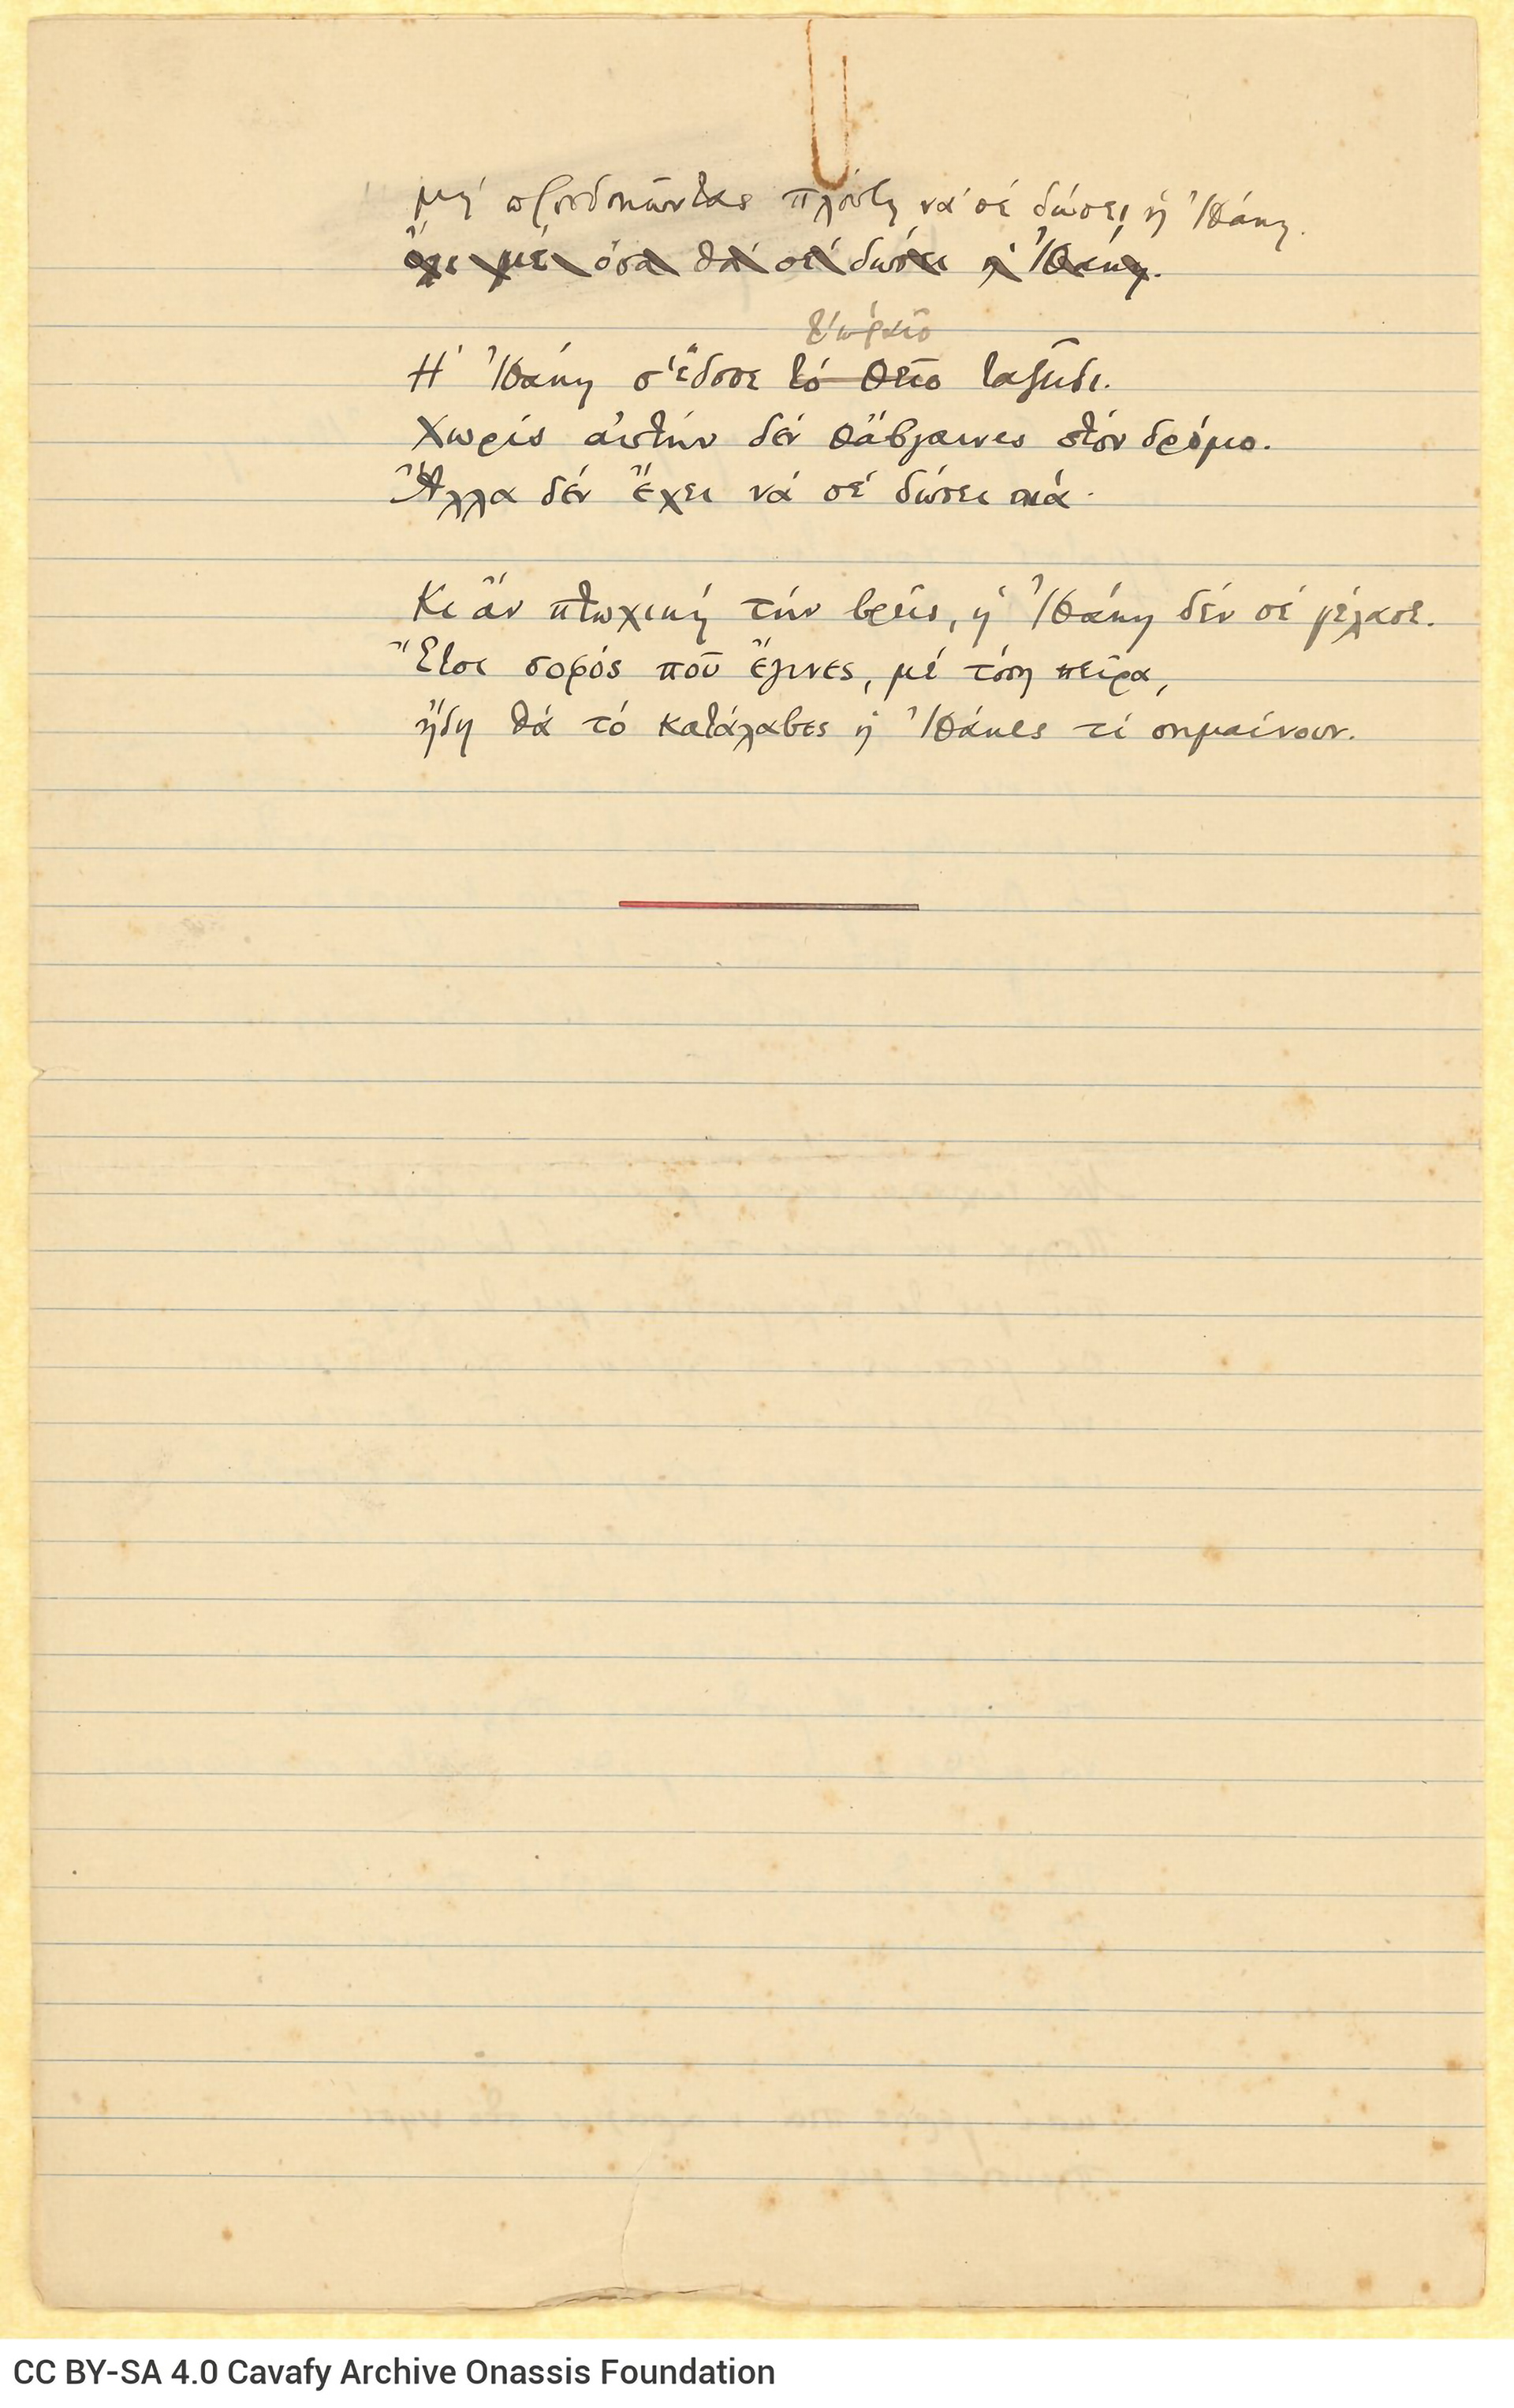 μή προσδοκῶντας πλούτη νά σέ δώσει ἡ Ἰθάκη.
ὄχι μέ ὅσα θά σέ δώσει ἡ Ἰθάκη.
τ' ὡραῖο
Ἡ Ἰθάκη σ' ἔδοσε τό θεῖο ταξεῖδι.
Χωρίς αὐτήν δέν θἄβγαινες στόν δρόμο.
Ἄλλα δέν ἔχει νά σέ δώσει πιά.
Κι ἄν πτωχική τήν βρεῖς, ἡ Ἰθάκη δέν σέ γέλασε.
Ἔτσι σοφός ποῦ ἔγινες, μέ τόση πεῖρα,
ἤδη θά τό κατάλαβες ᾑ Ἰθάκες τί σημαίνουν.
CC BY-SA 4.0 Cavafy Archive Onassis Foundation